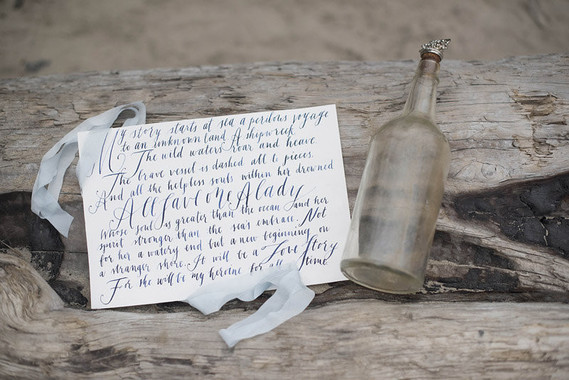 My story starts at sea a perilous voyage
to an unknown land A shipwreck
The wild waters roar and heave
The brave vessel is dashed all to pieces.
And all the helpless souls within her drowned
All save one A lady
whose soul is greater than the ocean and her
spirit stronger than the sea's embrace. Not
for her a watery end but a new beginning on
a stranger shore. It will be a Love Story
For she will be my heroine for all time